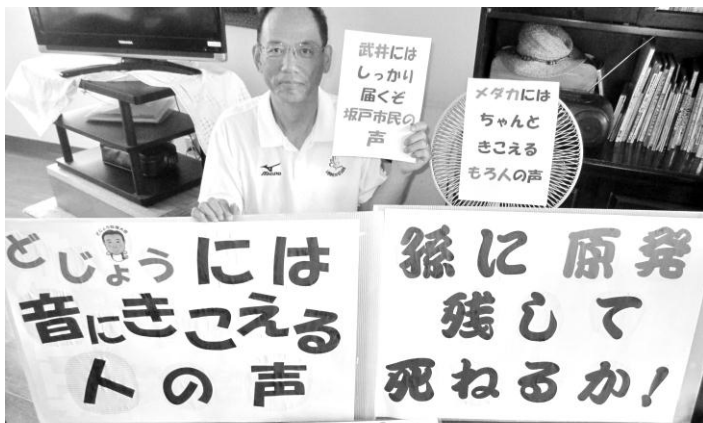 TOSHIBA
武井には
しっかり
届くぞ
坂戸市民の
声
メダカには
ちゃんと
きこえる
もろ人の声
Mizuno
どじょうには
音にきこえる
人の声
孫に原発
残して
死ねるか!